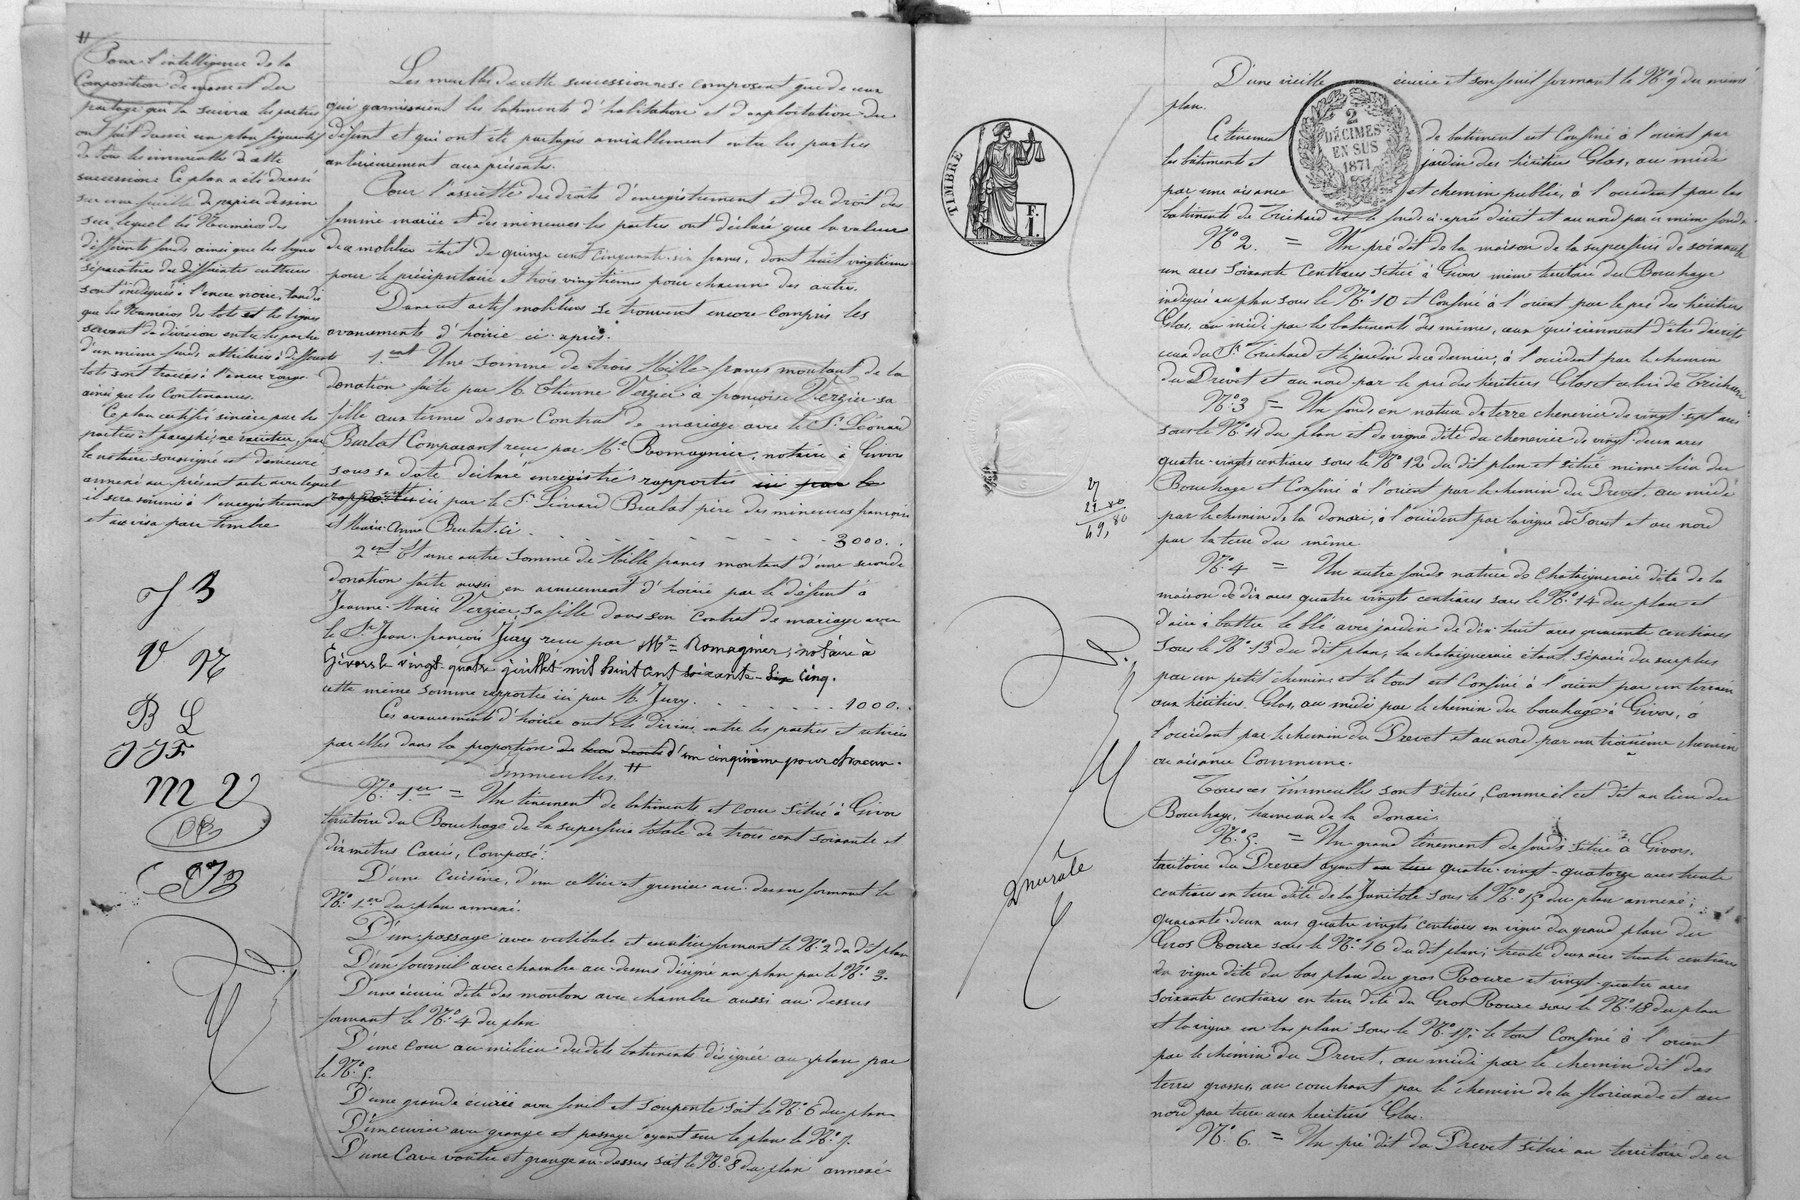 #
Pour l'intelligence de la
Composition de masse et du
partage qui la suivra les parties
ont fait dresser un plan figuratif
de tous les immeubles de cette
succession. Ce plan a été dressé
sur une feuille de papier dessin
sur lequel les Numéros des
différents fonds ainsi que les lignes
séparatives des différentes cultures
sont indiqués à l'encre noire, tandis
que les Numéros des lots et les lignes
servant de division entre les parties
d'un même fonds attribuées à différents
lots sont tracées à l'encre rouge
ainsi que les Contenances.
Ce plan certifié sincère par les
parties et paraphé, ne varietur, par
le notaire soussigné est demeuré
annexé au présent acte avec lequel
il sera soumis à l'enregistrement
et au visa pour timbre
J B
V N
B L
J J F
M V
Les meubles de cette succession ne se composent que de ceux
qui garnissaient les bâtiments d'habitation et d'exploitation du
défunt et qui ont été partagés amiablement entre les parties
antérieurement aux présentes.
Pour l'assiette des droits d'enregistrement et du droit des
femme mariée et des mineures les parties ont déclaré que la valeur
du mobilier était de quinze cent cinquante-six francs, dont huit vingtièmes
pour le préciputaire et trois vingtièmes pour chacun des autres.
Dans cet actif mobilier se trouvent encore compris les
avancements d'hoirie ci-après.
1ent Une somme de trois Mille francs montant de la
donation faite par M. Etienne Verzier à françoise Verzier sa
fille aux termes de son Contrat de mariage avec le Sr Léonard
Burlat Comparant reçu par Me Romagnier, notaire à Givors
sous sa date déclaré enregistré rapportés ici par le
rapportés ici par le Sr Léonard Burlat père des mineures françoise
et Marie-Anne Burlat. ci . . . . . . . . . 3000. .
2ent Et une autre somme de Mille francs montant d'une seconde
donation faite aussi en avancement d'hoirie par le défunt à
Jeanne-Marie Verzier sa fille dans son Contrat de mariage avec
le Sr Jean-françois Jury reçu par Me Romagnier, notaire à
Givors le vingt-quatre juillet mil huit cent soixante-six cinq.
cette même somme rapportée ici par M. Jury. . . . . . . . 1000. .
Ces avancements d'hoirie ont été divisés entre les parties et retirés
par elles dans la proportion de leurs droits d'un cinquième pour chacun.
Immeubles. #
No 1er = Un tènement de bâtiments et cour situé à Givors
territoire du Bouchage de la superficie totale de trois cent soixante et
dix mètres Carrés, Composé:
D'une Cuisine, d'un cellier et grenier au-dessus formant le
No 1er du plan annexé.
D'un passage avec vestibule et escalier formant le No 2 du dit plan
D'un fournil avec chambre au-dessus désigné au plan par le No 3.
D'une écurie dite des moutons avec chambre aussi au-dessus
formant le No 4 du plan
D'une Cour au milieu des dits bâtiments désignée au plan par
le No 5.
D'une grande écurie avec fenil et soupente soit le No 6 du plan
D'un cuvier avec grange et passage ayant sur le plan le No 7.
D'une Cave voûtée et grange au-dessus soit le No 8 du plan annexé
D'une vieille écurie et son fenil formant le No 9 du même
plan.
Ce tènement de bâtiment est Confiné à l'orient par
les bâtiments et jardin des héritiers Glas, au midi
par une aisance et chemin public, à l'occident par les
bâtiments de Trichard et le fonds ci-après décrit et au nord par ce même fonds.
No 2. = Un pré dit de la maison de la superficie de soixante
un ares soixante Centiares situé à Givors même territoire du Bouchage
indiqué au plan sous le No 10 et Confiné à l'orient par le pré des héritiers
Glas, au midi par les bâtiments des mêmes, ceux qui viennent d'être décrits
ceux du Sr Trichard et le jardin de ce dernier, à l'occident par le chemin
du Drevet et au nord par le pré des héritiers Glas et celui de Trichard
No 3 = Un fonds en nature de terre chenevier de vingt-sept ares
sous le No 11 du plan et de vigne dite du chenevier de vingt-deux ares
quatre-vingts centiares sous le No 12 du dit plan et situé même lieu du
Bouchage et Confiné à l'orient par le chemin du Drevet, au midi
par le chemin de la donaci, à l'occident par la vigne de Forest et au nord
par la terre du même.
No 4 = Un autre fonds nature de Chataigneraie dite de la
maison de dix ares quatre vingts centiares sous le No 14 du plan et
d'aire à battre le blé avec jardin de dix-huit ares quarante centiares
sous le No 13 du dit plan, la chataigneraie étant séparée du surplus
par un petit chemin, et le tout est Confiné à l'orient par un terrain
aux héritiers Glas, au midi par le chemin du bouchage à Givors, à
l'occident par le chemin du Drevet et au nord par un troisième chemin
ou aisance Commune.
Tous ces immeubles sont situés, Comme il est dit au lieu du
Bouchage, hameau de la donaci.
No 5. = Un grand tènement de fonds situé à Givors,
territoire du Drevet ayant quatre-vingt-quatorze ares trente
centiares en terre dite de la Jumitole sous le No 15 du plan annexé;
quarante-deux ares quatre vingts centiares en vigne du grand plan du
Gros Roure sous le No 16 du dit plan; trente deux ares trente centiares
en vigne dite du bas plan du gros Roure et vingt-quatre ares
soixante centiares en terre dite du Gros Roure sous le No 18 du plan
et la vigne en bas plan sous le No 17; le tout Confiné à l'orient
par le chemin du Drevet, au midi par le chemin dit des
terres grasses, au couchant par le chemin de la floriande et au
nord par terre aux héritiers Glas.
No 6. = Un pré dit du Drevet situé au territoire de ce
TIMBRE
F.
1.
2
DÉCIMES
EN SUS
1871
27
22 80
49, 80